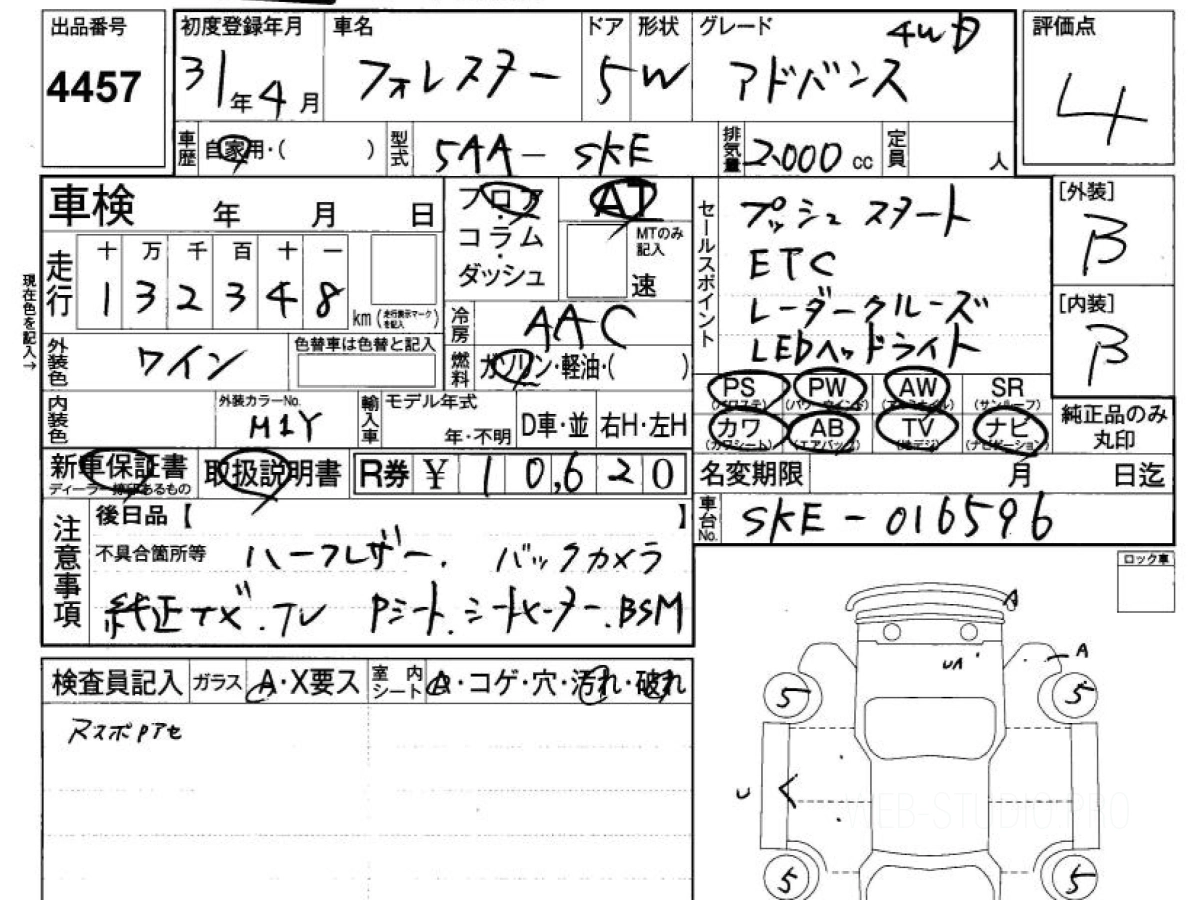 出品番号
4457
初度登録年月
31年4月
車名
フォレスター
ドア
5
形状
W
グレード
4WD
アドバンス
評価点
4
車歴
自家用・( )
型式
5AA-SKE
排気量
2.000 cc
定員
人
車検 年 月 日
フロア
・
コラム
・
ダッシュ
AT
MTのみ記入
速
セールスポイント
プッシュスタート
ETC
レーダークルーズ
LEDヘッドライト
[外装]
B
[内装]
B
現在色を記入→
走行
十 万 千 百 十 一
1 3 2 3 4 8
km (走行表示マークを記入)
冷房
AAC
外装色
ワイン
色替車は色替と記入
燃料
ガソリン・軽油・( )
PS PW AW SR
(パワステ) (パワーウインド) (アルミホイル) (サンルーフ)
カワ AB TV ナビ
(カワシート) (エアバッグ) (地デジ) (ナビゲーション)
純正品のみ
丸印
内装色
外装カラーNo.
M1Y
輸入車
モデル年式
年・不明
D車・並
右H・左H
新車保証書
取扱説明書
R券 ¥ 10,620
名変期限 月 日迄
車台No.
SKE-016596
注意事項
後日品【 】
不具合箇所等
ハーフレザー. バックカメラ
純正ナビ.TV Pシート.シートヒーター.BSM
ロック車
A
A
UA
5 5
U
5 5
検査員記入
ガラス
A・X要ス
室内シート
A・コゲ・穴・汚れ・破れ
WEB-STUDIO.PRO